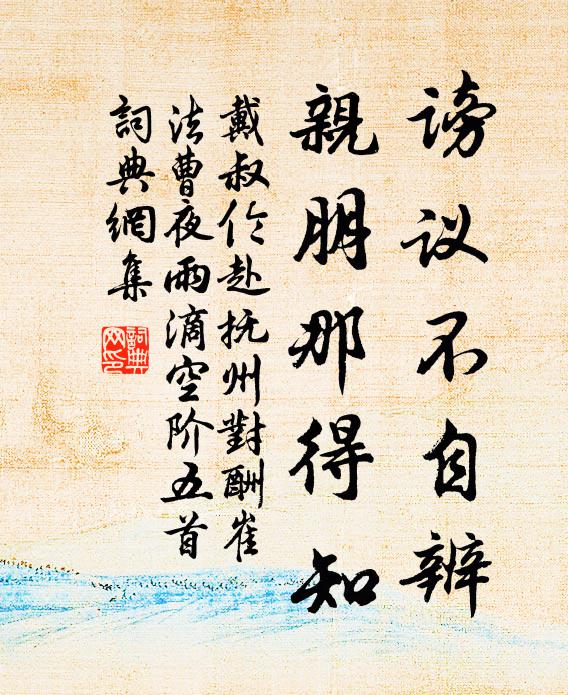 谤议不自辨
親朋那得知
戴叔伦赴抚州對酬崔
法曹夜雨滴空阶五首
詞典網集
詞典
网印